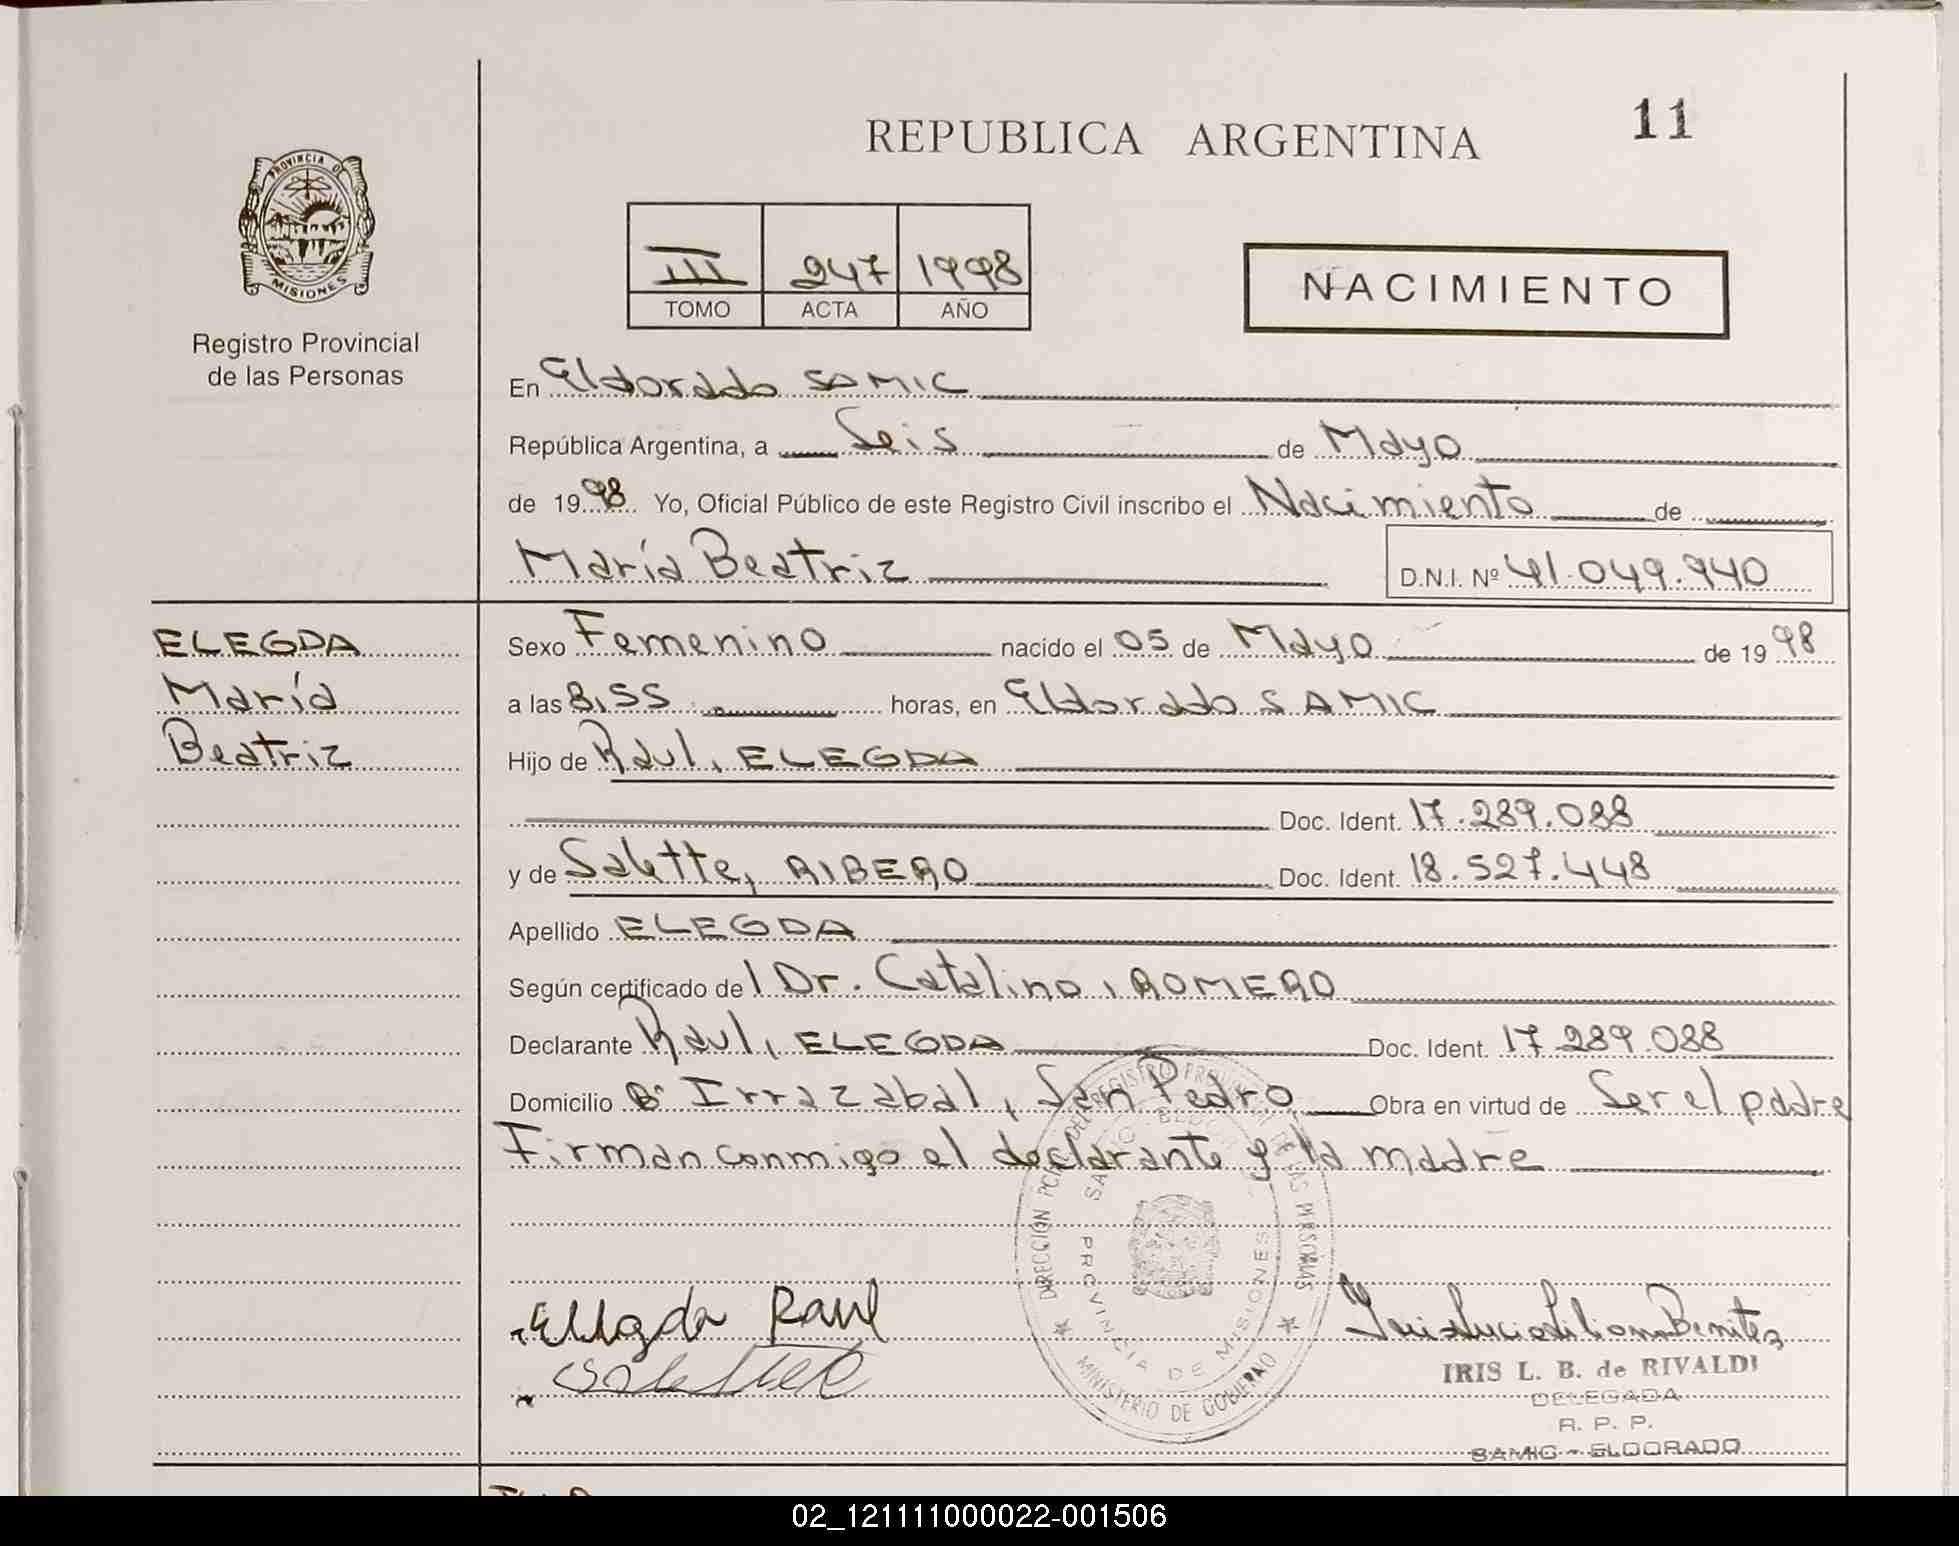 REPUBLICA ARGENTINA
11
PROVINCIA DE
MISIONES
Registro Provincial
de las Personas
III 247 1998
TOMO ACTA AÑO
NACIMIENTO
En Eldorado SAMIC
República Argentina, a Seis de Mayo
de 1998 Yo, Oficial Público de este Registro Civil inscribo el Nacimiento de
María Beatriz D.N.I. Nº 41.049.940
ELEGDA
María
Beatriz
Sexo Femenino nacido el 05 de Mayo de 1998
a las 8,55 horas, en Eldorado SAMIC
Hijo de Raul, ELEGDA
Doc. Ident. 17.289.088
y de Salette, RIBERO Doc. Ident. 18.527.448
Apellido ELEGDA
Según certificado del Dr. Catalino, ROMERO
Declarante Raul, ELEGDA Doc. Ident. 17.289.088
Domicilio Bº Irrazabal, San Pedro Obra en virtud de Ser el padre
Firman conmigo el declarante y la madre
DIRECCIÓN REGISTRO PROVINCIAL DE LAS PERSONAS
PROVINCIA DE MISIONES
MINISTERIO DE GOBIERNO
Elegda Raul
Iris Lucia Liliana Benitez
IRIS L. B. de RIVALDI
DELEGADA
R. P. P.
SAMIC - ELDORADO
02_121111000022-001506